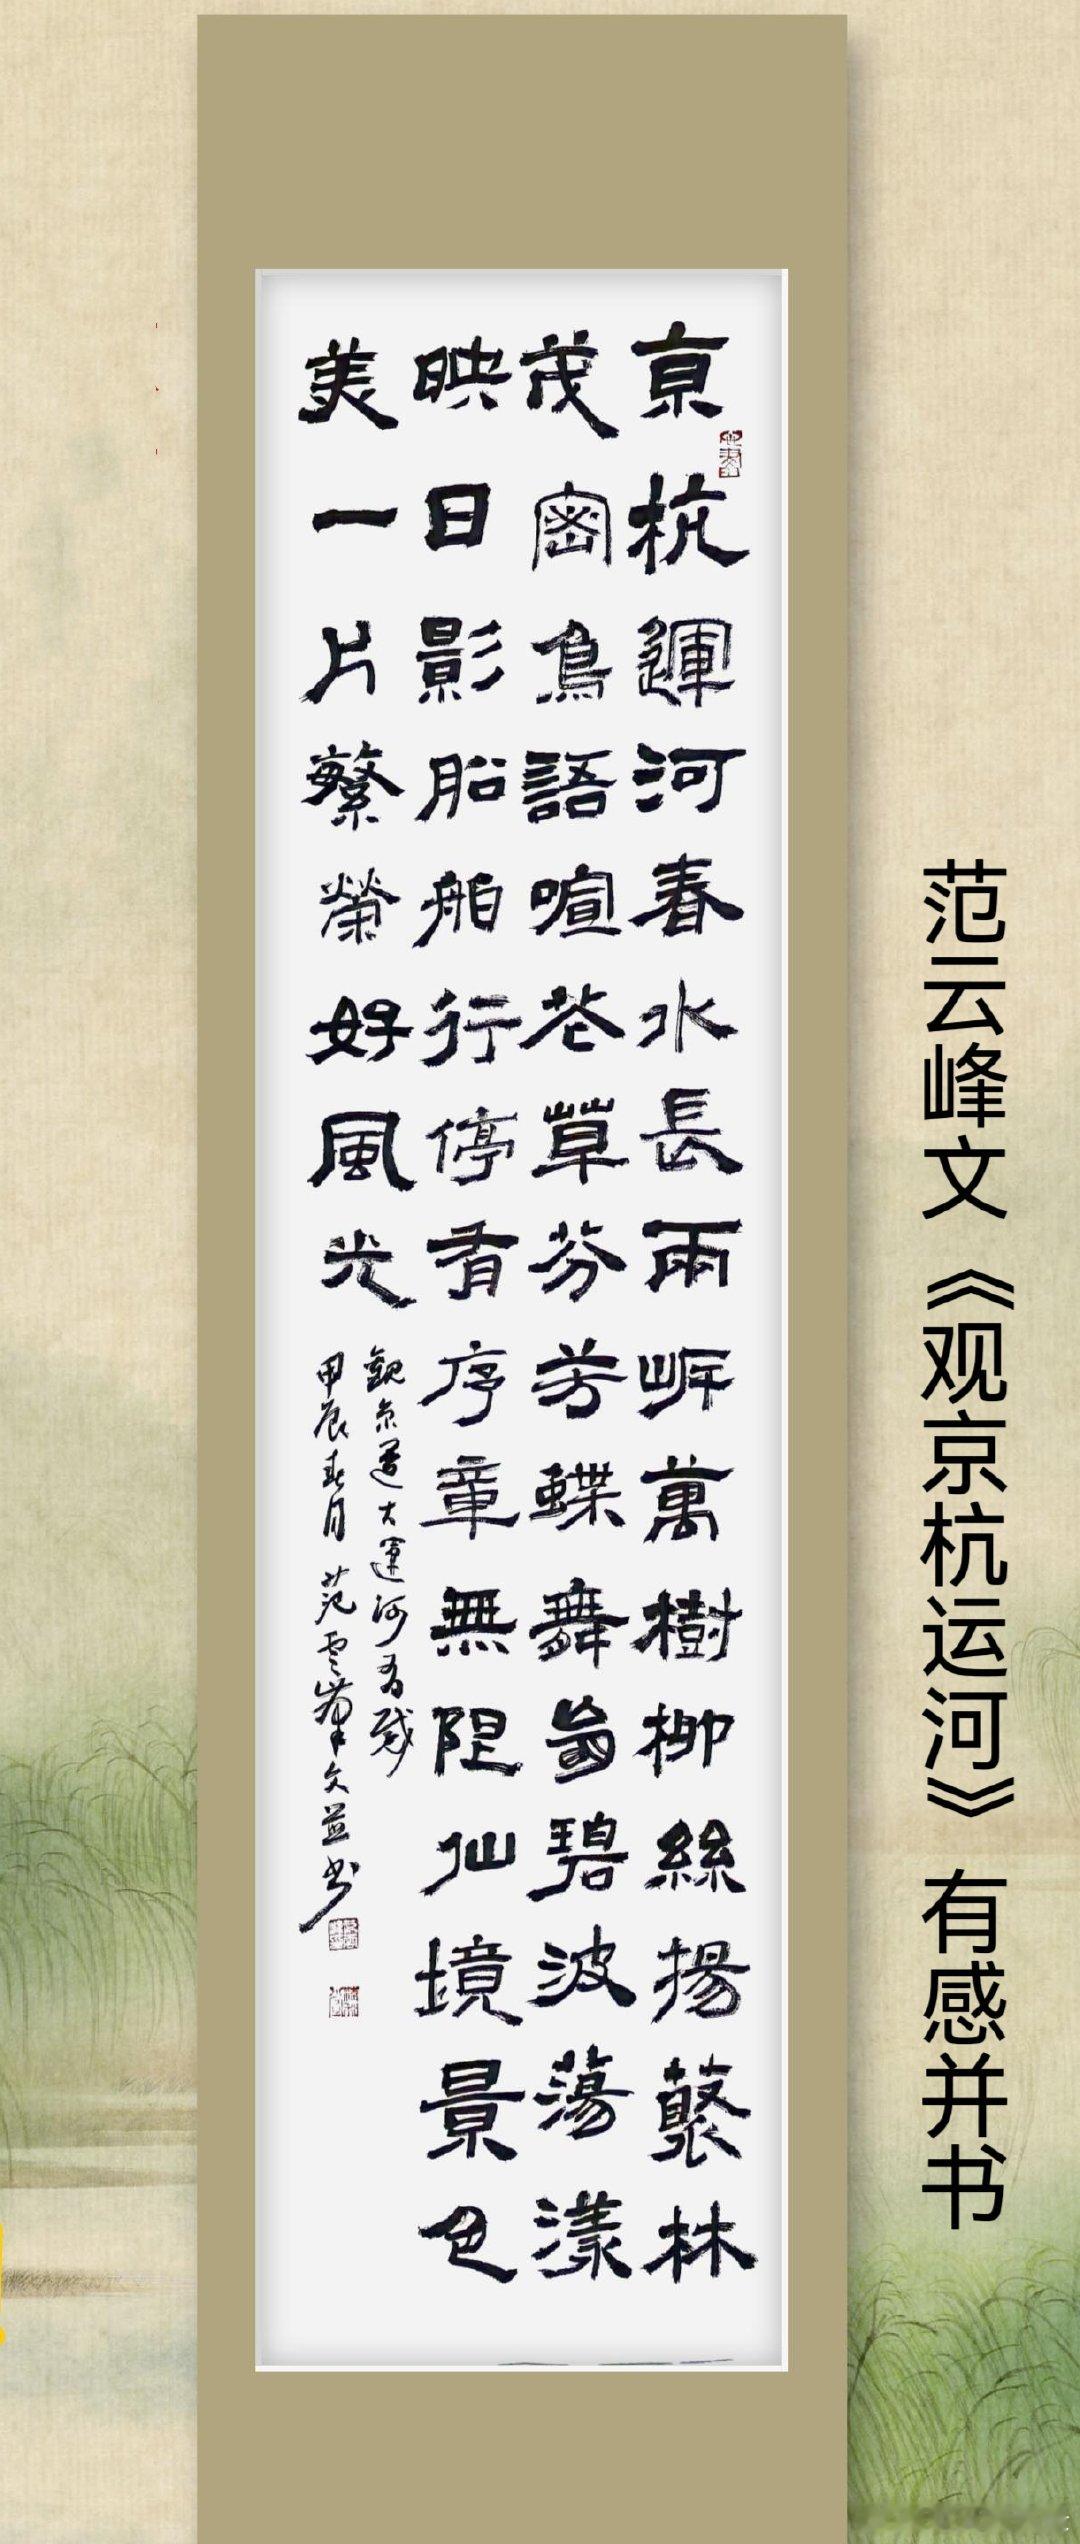 京杭運河春水長兩岸萬樹柳絲揚藂林
茂密鳥語喧花草芬芳蝶舞碧波蕩漾
映日影船舶行停有序章無限仙境景色
美一片繁榮好風光
觀京大運河有感
甲辰春月范雲峯文並書
范云峰文《观京杭运河》有感并书